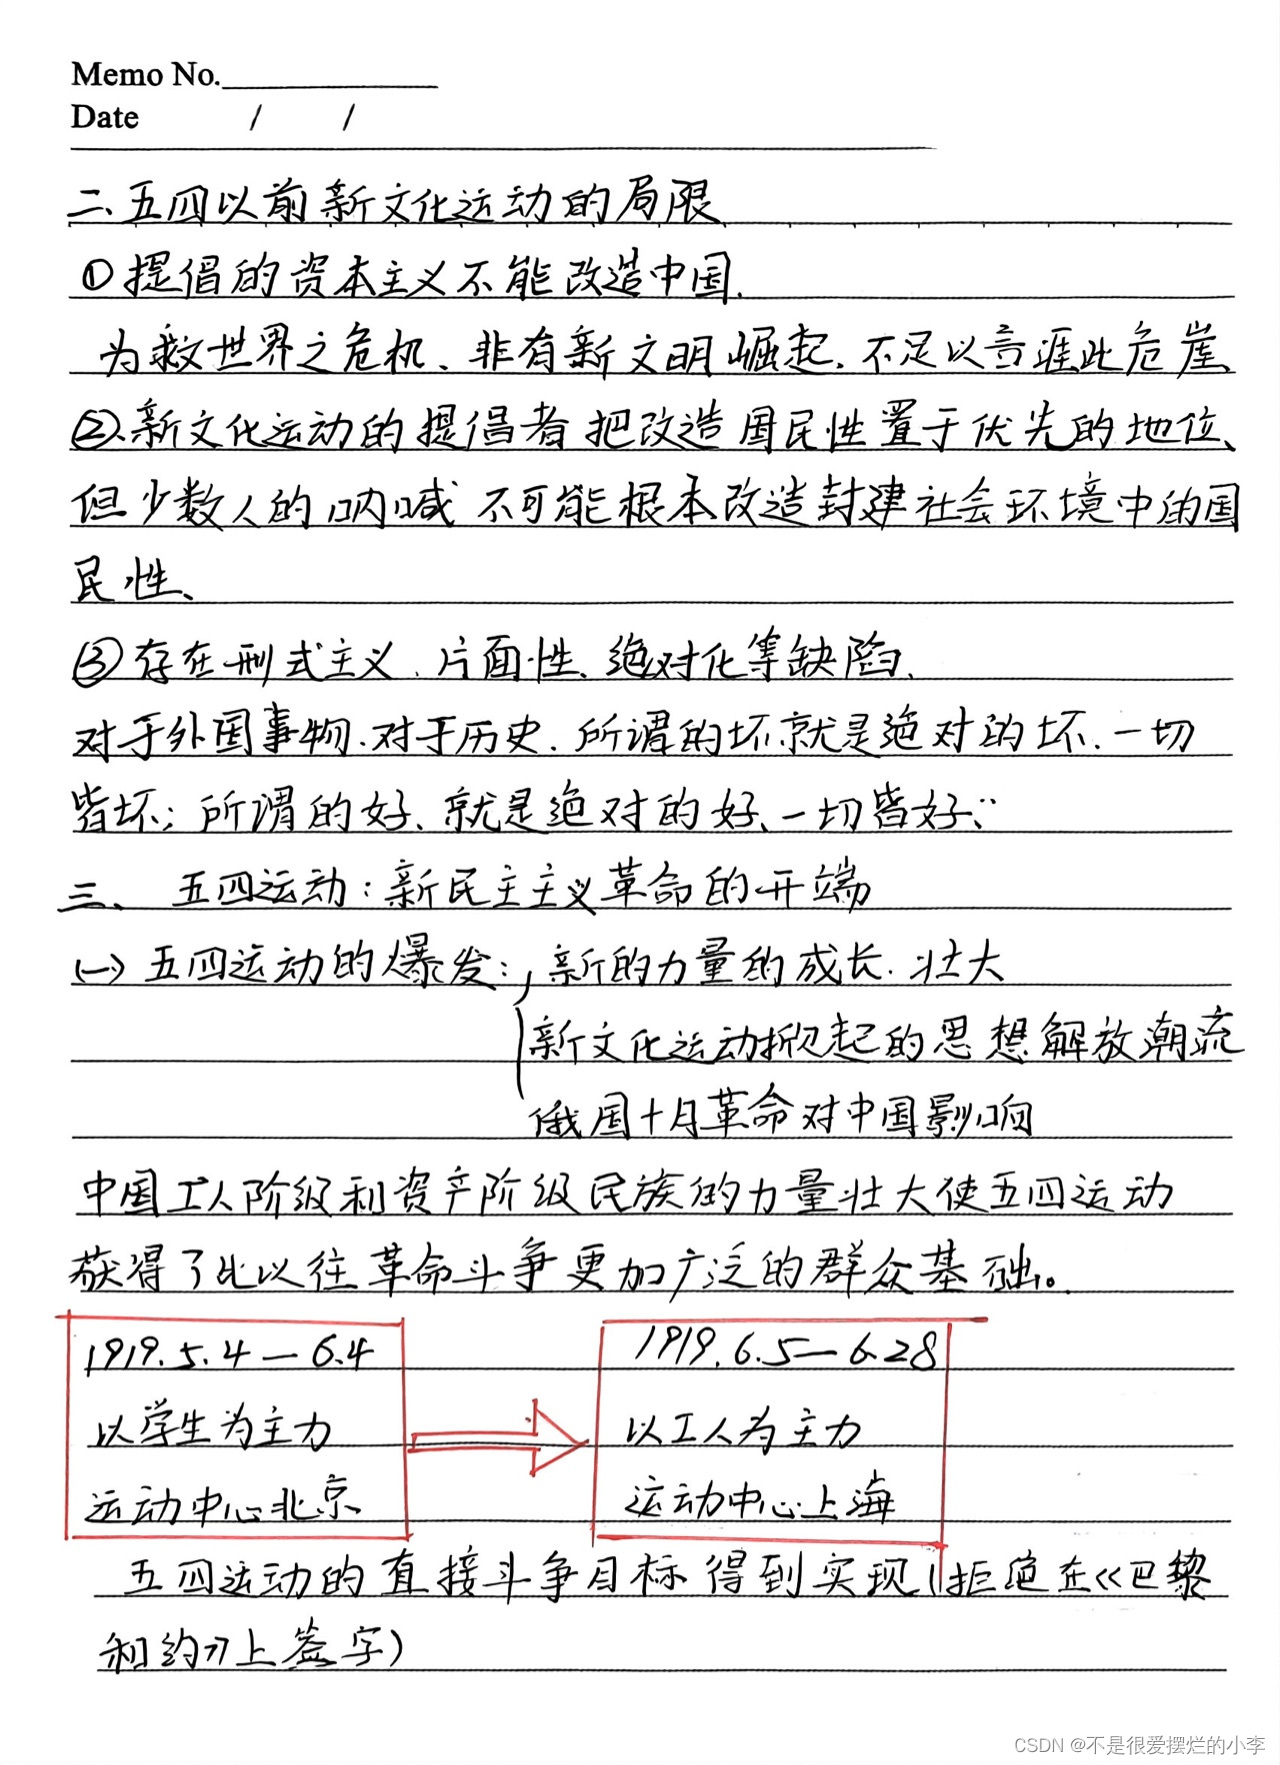 Memo No.
Date / /
二、五四以前新文化运动的局限
①提倡的资本主义不能改造中国.
为救世界之危机、非有新文明崛起.不足以言涯此危崖、
②、新文化运动的提倡者把改造国民性置于优先的地位、
但少数人的呐喊不可能根本改造封建社会环境中的国
民性、
③存在形式主义、片面性、绝对化等缺陷.
对于外国事物.对于历史.所谓的坏就是绝对的坏.一切
皆坏；所谓的好、就是绝对的好、一切皆好、
三、五四运动：新民主主义革命的开端
(一)五四运动的爆发：新的力量的成长.壮大
新文化运动掀起的思想解放潮流
俄国十月革命对中国影响
中国工人阶级和资产阶级民族的力量壮大使五四运动
获得了比以往革命斗争更加广泛的群众基础。
1919.5.4—6.4 1919.6.5—6.28
以学生为主力 以工人为主力
运动中心北京 运动中心上海
五四运动的直接斗争目标得到实现(拒绝在《巴黎
和约》上签字)
CSDN @不是很爱摆烂的小李